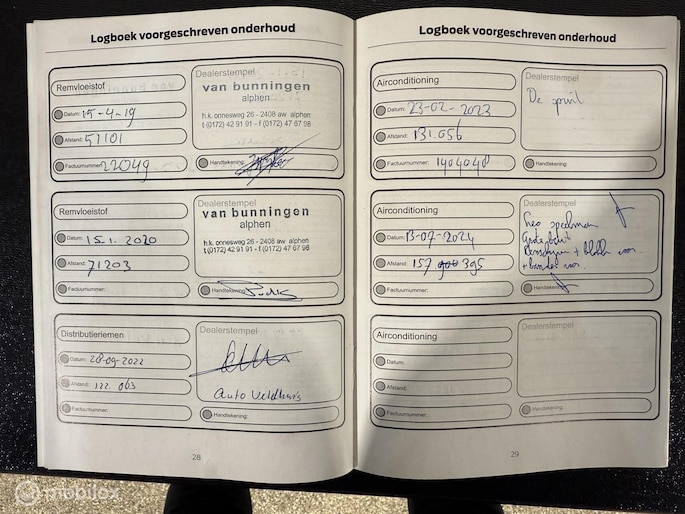 Logboek voorgeschreven onderhoud
Remvloeistof
Datum: 15-4-19
Afstand: 51101
Factuurnummer: 22049
Dealerstempel
van bunningen
alphen
h.k. onnesweg 26 - 2408 aw alphen
t (0172) 42 91 91 - f (0172) 47 67 98
Handtekening:
Remvloeistof
Datum: 15.1. 2020
Afstand: 71203
Factuurnummer:
Dealerstempel
van bunningen
alphen
h.k. onnesweg 26 - 2408 aw alphen
t (0172) 42 91 91 - f (0172) 47 67 98
Handtekening:
Distributieriemen
Datum: 28-09-2022
Afstand: 122.063
Factuurnummer:
Dealerstempel
Auto Veldhuis
Handtekening:
28
Logboek voorgeschreven onderhoud
Airconditioning
Datum: 23-02-2023
Afstand: 131.056
Factuurnummer: 1404048
Dealerstempel
De
Handtekening:
Airconditioning
Datum: 13-07-2024
Afstand: 157 395
Factuurnummer:
Dealerstempel
+ blokken voor
+ banden voor
Handtekening:
Airconditioning
Datum:
Afstand:
Factuurnummer:
Dealerstempel
Handtekening:
29
mobilox